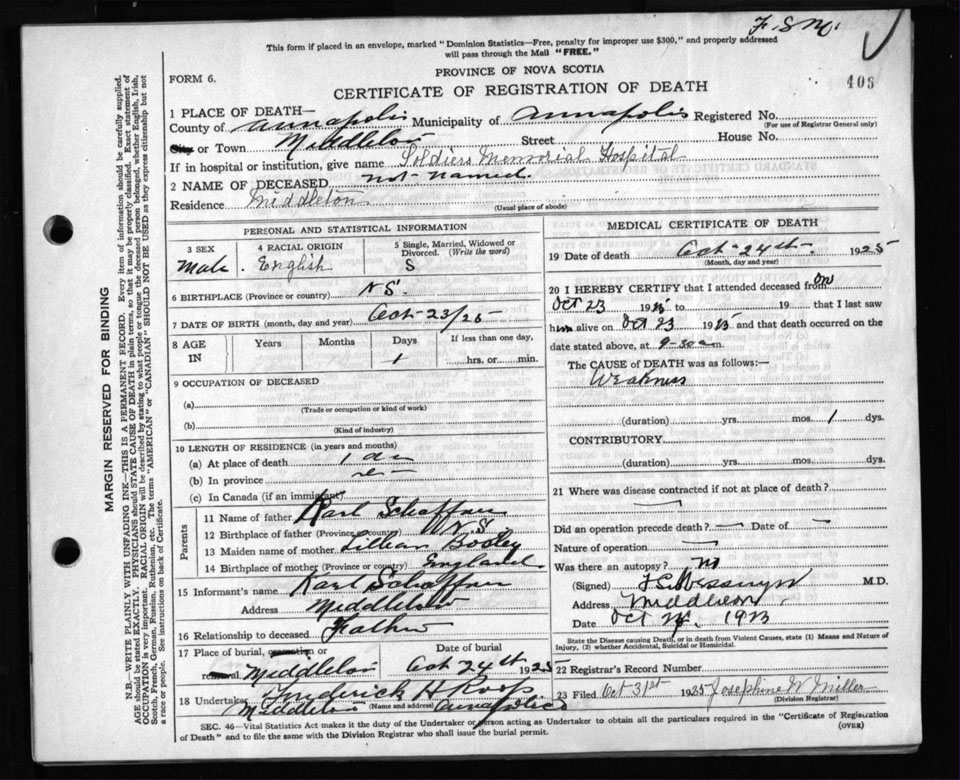 F. S. M.
This form if placed in an envelope, marked "Dominion Statistics—Free, penalty for improper use $300," and properly addressed
will pass through the Mail "FREE."
FORM 6.
PROVINCE OF NOVA SCOTIA
CERTIFICATE OF REGISTRATION OF DEATH
406
1 PLACE OF DEATH—
County of Annapolis Municipality of Annapolis Registered No.
(For use of Registrar General only)
City or Town Middleton Street House No.
If in hospital or institution, give name Soldiers Memorial Hospital
2 NAME OF DECEASED not named.
Residence Middleton
(Usual place of abode)
PERSONAL AND STATISTICAL INFORMATION
3 SEX
Male.
4 RACIAL ORIGIN
English
5 Single, Married, Widowed or Divorced. (Write the word)
S
6 BIRTHPLACE (Province or country) N S.
7 DATE OF BIRTH (month, day and year) Oct-23/25
8 AGE IN
Years
Months
Days
1
If less than one day,
hrs, or min.
9 OCCUPATION OF DECEASED
(a)
(Trade or occupation or kind of work)
(b)
(Kind of industry)
10 LENGTH OF RESIDENCE (in years and months)
(a) At place of death 1 da
(b) In province
(c) In Canada (if an immigrant)
Parents
11 Name of father Karl Schaffner
12 Birthplace of father (Province or country) N S.
13 Maiden name of mother Lillian
14 Birthplace of mother (Province or country) England
15 Informant's name Karl Schaffner
Address Middleton
16 Relationship to deceased Father
17 Place of burial, cremation or removal Middleton
Date of burial
Oct 24th 1925
18 Undertaker Frederick H Roop
(Name and address)
Middleton Annapolis
MEDICAL CERTIFICATE OF DEATH
19 Date of death Oct-24th- 1925
(Month, day and year)
20 I HEREBY CERTIFY that I attended deceased from on
Oct 23 1925 to 19 that I last saw
him alive on Oct 23 1925 and that death occurred on the
date stated above, at 9-30 a m.
The CAUSE OF DEATH was as follows:—
Weakness
(duration) yrs. mos. 1 dys.
CONTRIBUTORY
(duration) yrs. mos. dys.
21 Where was disease contracted if not at place of death?
—
Did an operation precede death? — Date of —
Nature of operation —
Was there an autopsy? no
(Signed) M.D.
Address Middleton
Date Oct 24. 1923
State the Disease causing Death, or in death from Violent Causes, state (1) Means and Nature of
Injury, (2) whether Accidental, Suicidal or Homicidal.
22 Registrar's Record Number
23 Filed Oct 31st 1925 Josephine W Miller
(Division Registrar)
SEC. 46—Vital Statistics Act makes it the duty of the Undertaker or person acting as Undertaker to obtain all the particulars required in the "Certificate of Registration
of Death" and to file the same with the Division Registrar who shall issue the burial permit.
(OVER)
MARGIN RESERVED FOR BINDING
N.B.—WRITE PLAINLY WITH UNFADING INK—THIS IS A PERMANENT RECORD. Every item of information should be carefully supplied.
AGE should be stated EXACTLY. PHYSICIANS should STATE CAUSE OF DEATH in plain terms, so that it may be properly classified. Exact statement of
OCCUPATION is very important. RACIAL ORIGIN will be described by stating to what people or tongue the deceased person belonged, whether English, Irish,
Scotch, French, German, Russian, Ruthenian, etc. The terms "AMERICAN" or "CANADIAN" SHOULD NOT BE USED as they express citizenship but not
a race or people. See instructions on back of Certificate.